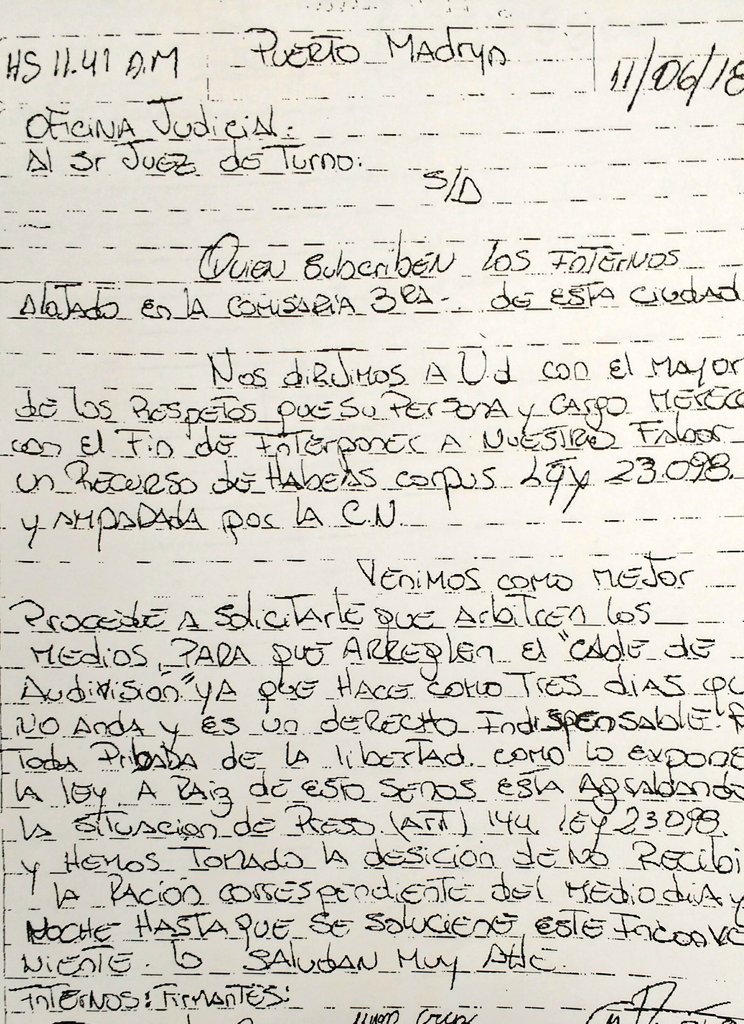 HS 11.41 A.M Puerto Madryn 11/06/18
Oficina Judicial.
Al Sr Juez de Turno.
S/D
Quien Subscriben los Internos
Alojado en la comisaria 3RA-. de esta ciudad
Nos dirijimos A Ud con el mayor
de los Respetos que su Persona y cargo merece
con el Fin de Interponer A Nuestro Fabor
un Recurso de Habeas corpus Ley 23.098
y AmpaRada por la C.N.
Venimos como mejor
Procede A Solicitarle que Arbitren los
Medios, PARA que ARReglen el "Cable de
Audivisión" ya que Hace como Tres dias qu
NO Anda y es un deRecho Indispensable P
Toda Pribada de la libertad. como lo expone
la ley. A Raiz de esto senos esta Agrabando
la situacion de Preso (Art) 144 ley 23098.
y Hemos Tomado la desicion de No Recibi
la Racion correspondiente del medio dia y
Noche Hasta que se solucione este Inconve
niente. lo Saludan Muy Atte
Internos: Firmantes: